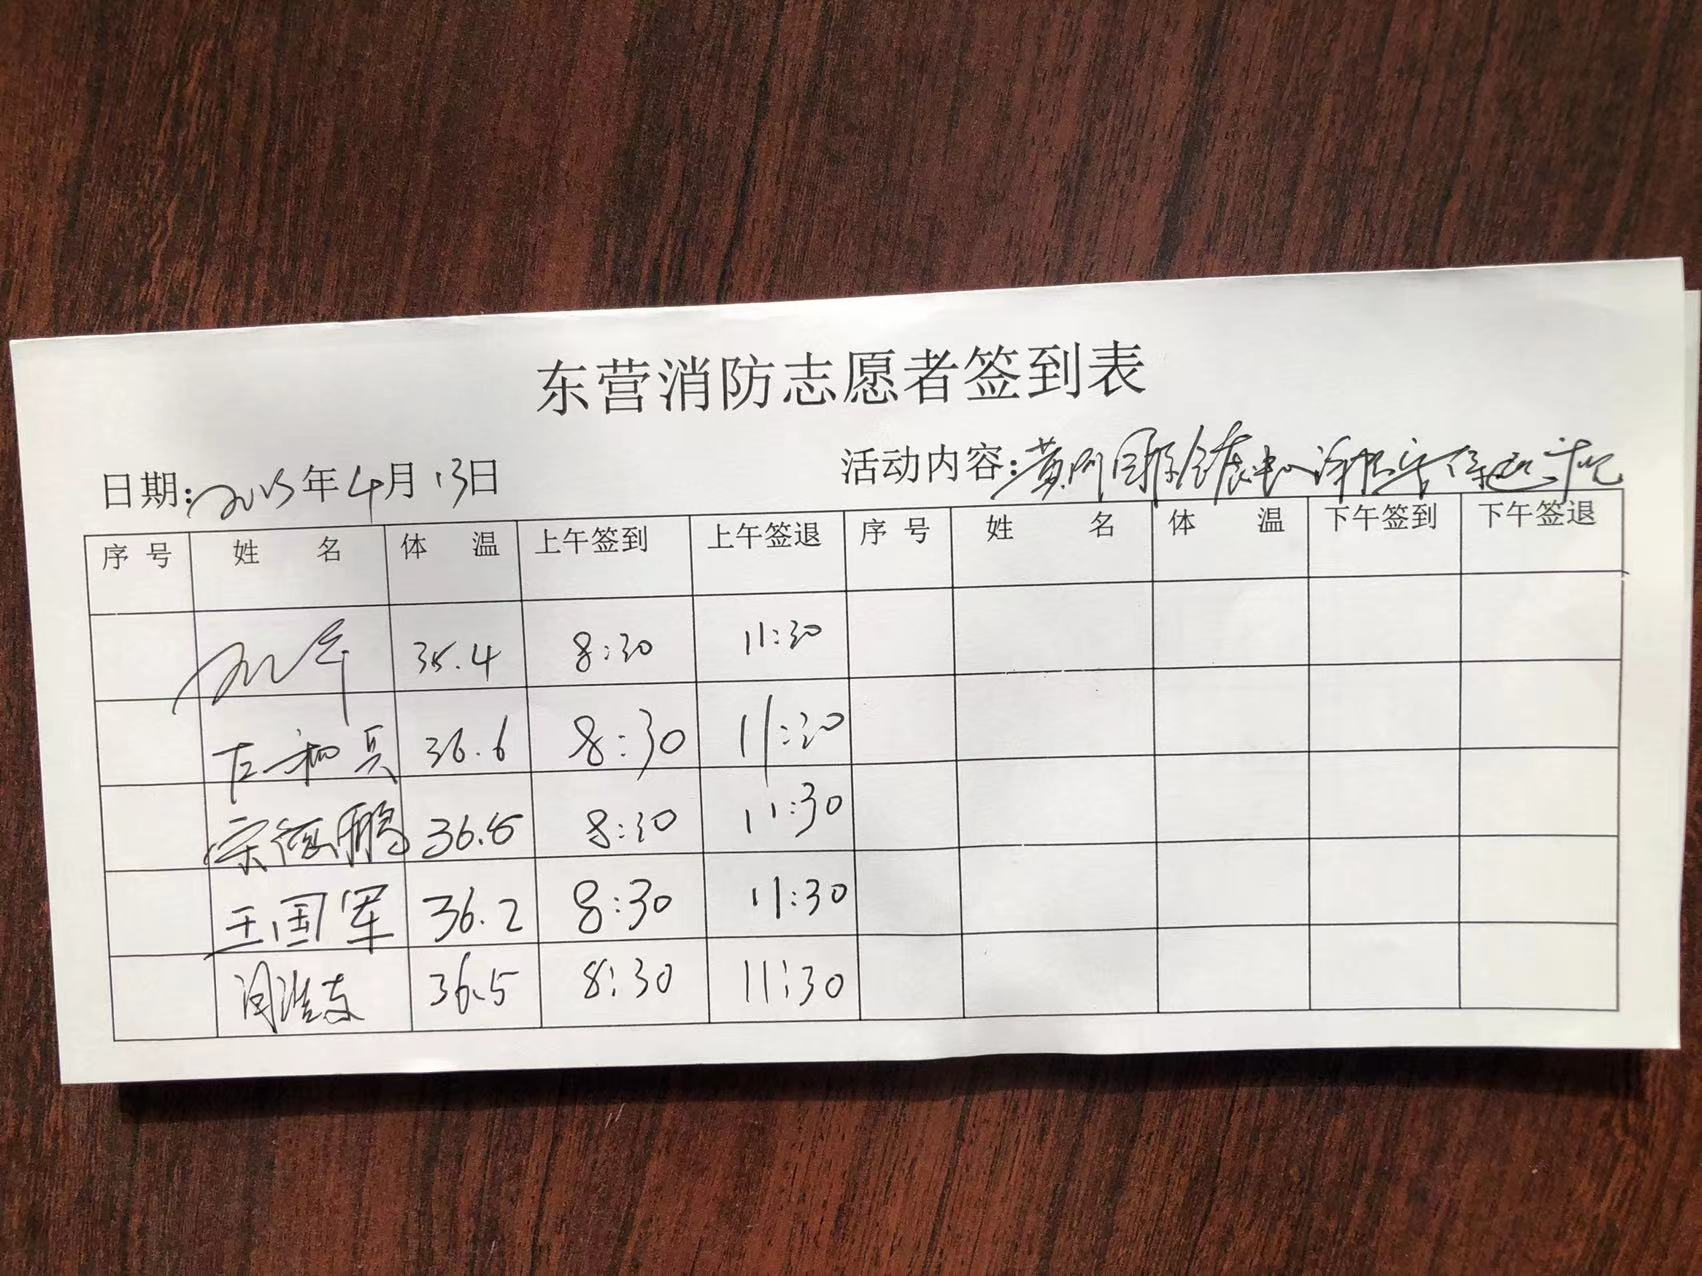 东营消防志愿者签到表
日期: 年4月13日 活动内容:黄河国际会展中心
序号 姓名 体温 上午签到 上午签退 序号 姓名 体温 下午签到 下午签退
35.4 8:30 11:30
36.6 8:30 11:30
宋 鹏 36.5 8:30 11:30
王国军 36.2 8:30 11:30
36.5 8:30 11:30